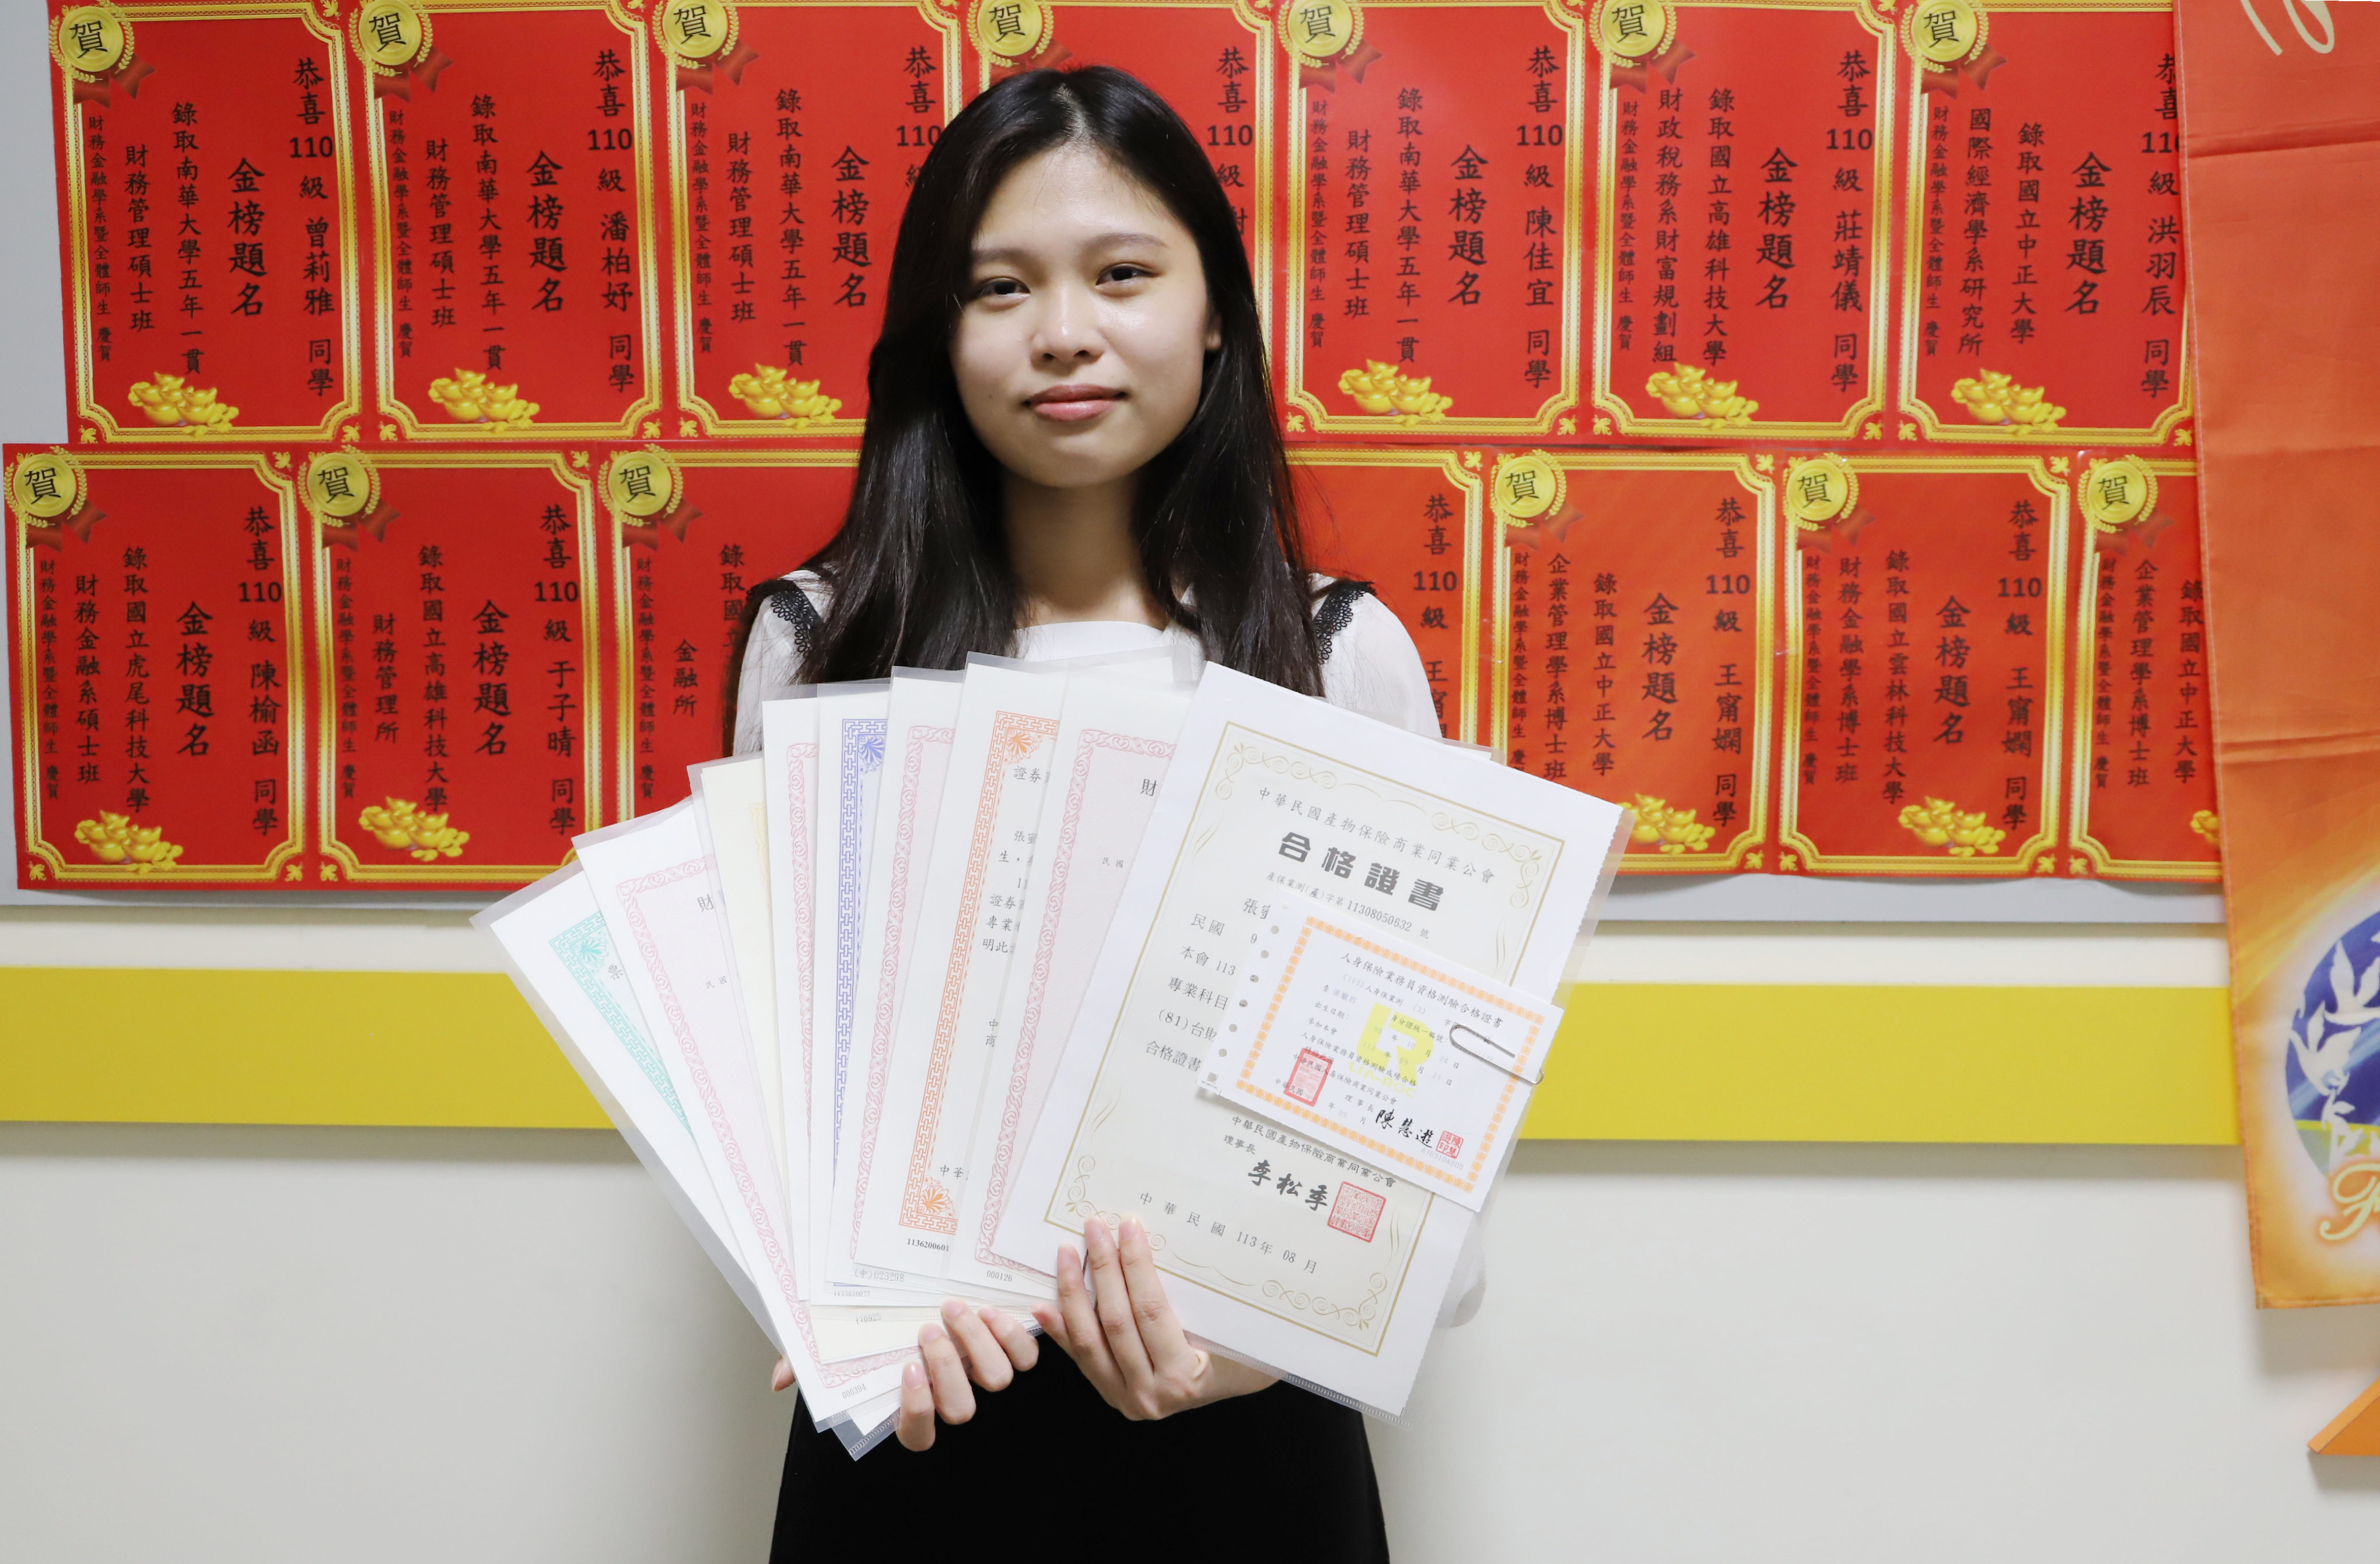 賀
恭喜110級 曾莉雅 同學
金榜題名
錄取南華大學五年一貫
財務管理碩士班
財務金融學系暨全體師生 慶賀
賀
恭喜110級 潘柏妤 同學
金榜題名
錄取南華大學五年一貫
財務管理碩士班
財務金融學系暨全體師生 慶賀
賀
恭喜110級
金榜題名
錄取南華大學五年一貫
財務管理碩士班
財務金融學系暨全體師生 慶賀
賀
恭喜110級
賀
恭喜110級 陳佳宜 同學
金榜題名
錄取南華大學五年一貫
財務管理碩士班
財務金融學系暨全體師生 慶賀
賀
恭喜110級 莊靖儀 同學
金榜題名
錄取國立高雄科技大學
財政稅務系財富規劃組
財務金融學系暨全體師生 慶賀
賀
恭喜110級 洪羽辰 同學
金榜題名
錄取國立中正大學
國際經濟學系研究所
財務金融學系暨全體師生 慶賀
賀
恭喜110級 陳榆函 同學
金榜題名
錄取國立虎尾科技大學
財務金融系碩士班
財務金融學系暨全體師生 慶賀
賀
恭喜110級 于子晴 同學
金榜題名
錄取國立高雄科技大學
財務管理所
財務金融學系暨全體師生 慶賀
賀
錄取國立
金融所
財務金融學系暨全體師生
恭喜110級 王甯嫻
賀
恭喜110級 王甯嫻 同學
金榜題名
錄取國立中正大學
企業管理學系博士班
財務金融學系暨全體師生 慶賀
賀
恭喜110級 王甯嫻 同學
金榜題名
錄取國立雲林科技大學
財務金融學系博士班
財務金融學系暨全體師生 慶賀
賀
錄取國立中正大學
企業管理學系博士班
財務金融學系暨全體師生 慶賀
中華民國產物保險商業同業公會
合格證書
產保業測(產)字第11308050632 號
張
民國 9
本會 113
專業科目
(81)台財
合格證書
中華民國產物保險商業同業公會
理事長 李松季
中華民國 113年 08月
人身保險業務員資格測驗合格證書
人身保險業務員資格測驗成績合格
理事長 陳慧遊
財
民國
證券
張
生，
證券
專業
明此
中
商
中華
1136200601
000126
財
000394